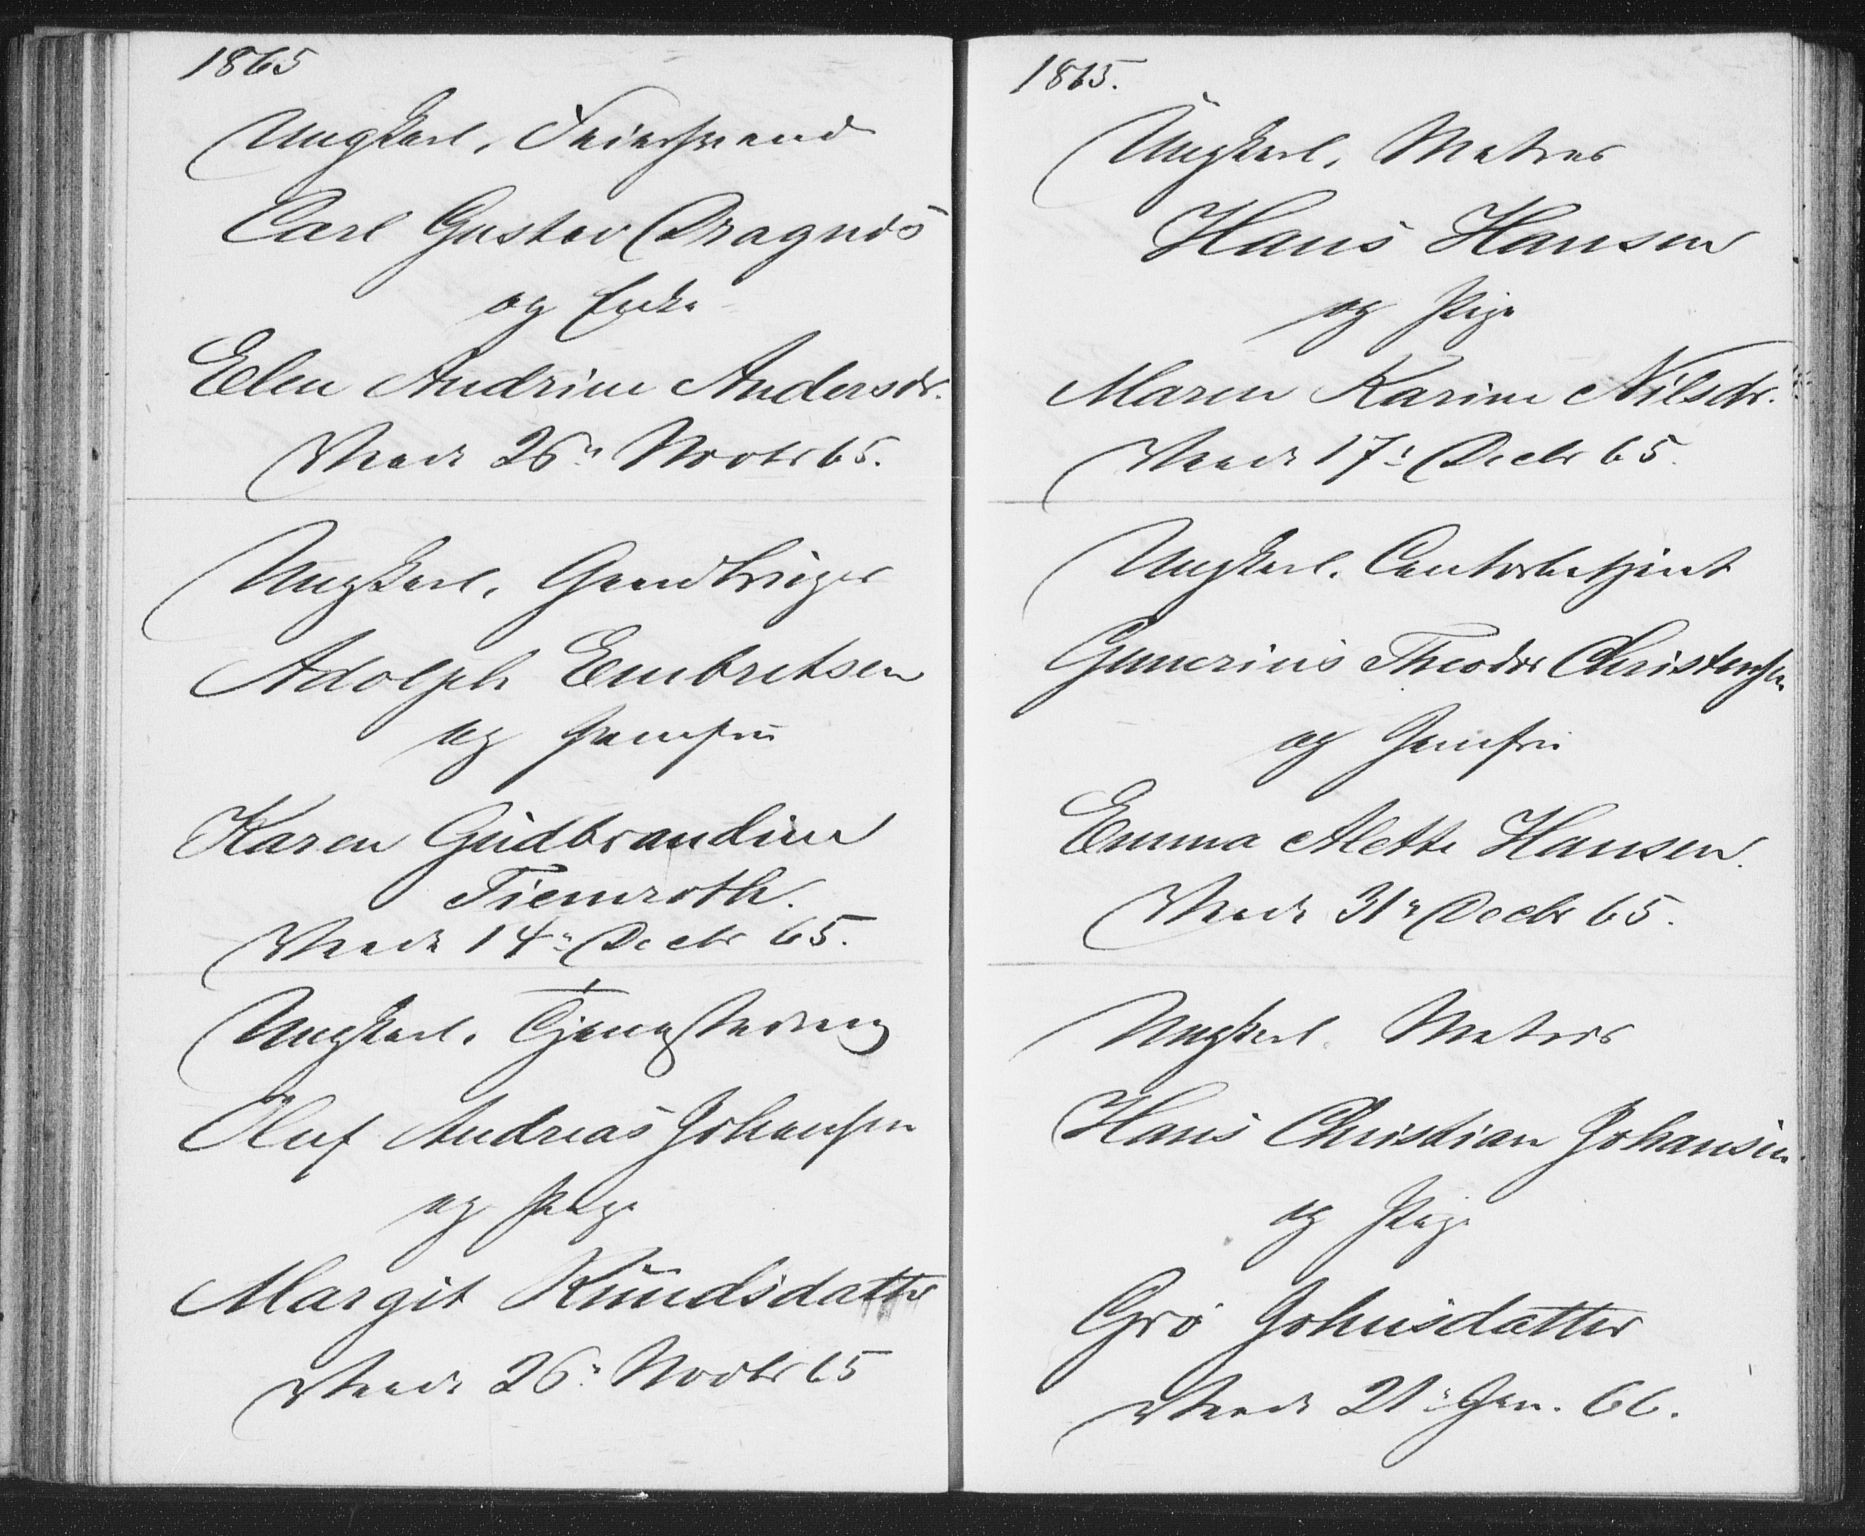 1865
Ungkarl, Feiersvend
Carl Gustav Dragnäs
og Enke
Elen Andrine Andersdr.
Viede 26: Novbr 65.
Ungkarl, Gaardbruger
Adolph Embretsen
og Jomfru
Karen Gudbrandine
Tiemroth.
Viede 14: Decbr 65.
Ungkarl,
Oluf Andreas Johansen
og Pige
Margit Knudsdatter
Viede 26: Novbr 65
1865.
Ungkarl, Matros
Hans Hansen
og Pige
Maren Karine Nilsdr.
Viede 17: Decbr 65.
Ungkarl. Contorbetjent
Gunerius Theodor Christensen
og Jomfru
Emma Alette Hansen.
Viede 31: Decbr 65.
Ungkarl. Matros
Hans Christian Johansen.
og Pige
Gro Johnsdatter
Viede 21: Jan. 66.